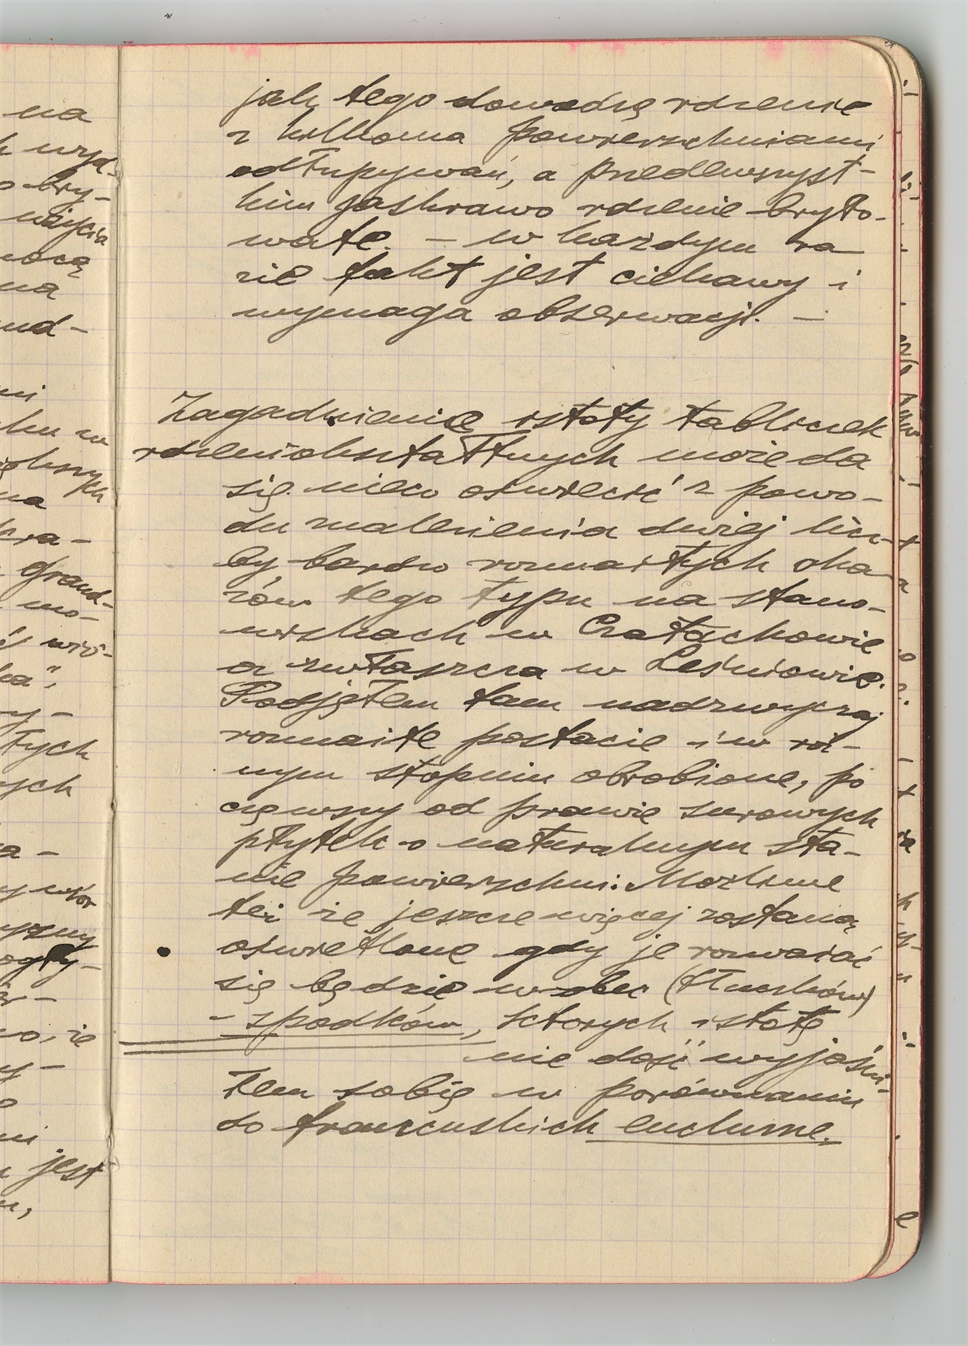 na
wyd-
bry-
mocą
na
ud-
mi
ku w
na
kra-
grand-
mo-
wiś-
ka",
y-
tych
ych
a-
y wiór
y-
o, że
y-
mi
jest
jak tego dowodzą rdzenie
z kilkoma powierzchniami
odłupywań, a przedewszyst-
kim jaskrawo rdzenie bryło-
wate. – w każdym ra
zie fakt jest ciekawy i
wymaga obserwacji. –
Zagadnienie istoty tabliczek
rdzeniokształtnych może da
się nieco oświecić z powo-
du znalezienia dużej licz-
by bardzo rozmaitych oka
zów tego typu na stano-
wiskach w Czatachowie
a zwłaszcza w Leśniowie.
Podjąłem tam nadzwyczaj
rozmaite postacie i w róż-
nym stopniu obrobione, po
cząwszy od prawie surowych
płytek o naturalnym sta-
nie powierzchni. Możliwe
też że jeszcze więcej zostaną
oświetlone gdy je rozważać
się będzie wobec (tłuczków)
– spodków, których istotę
nie dość wyjaśni-
łem sobie w porównaniu
do francuskich enclume.